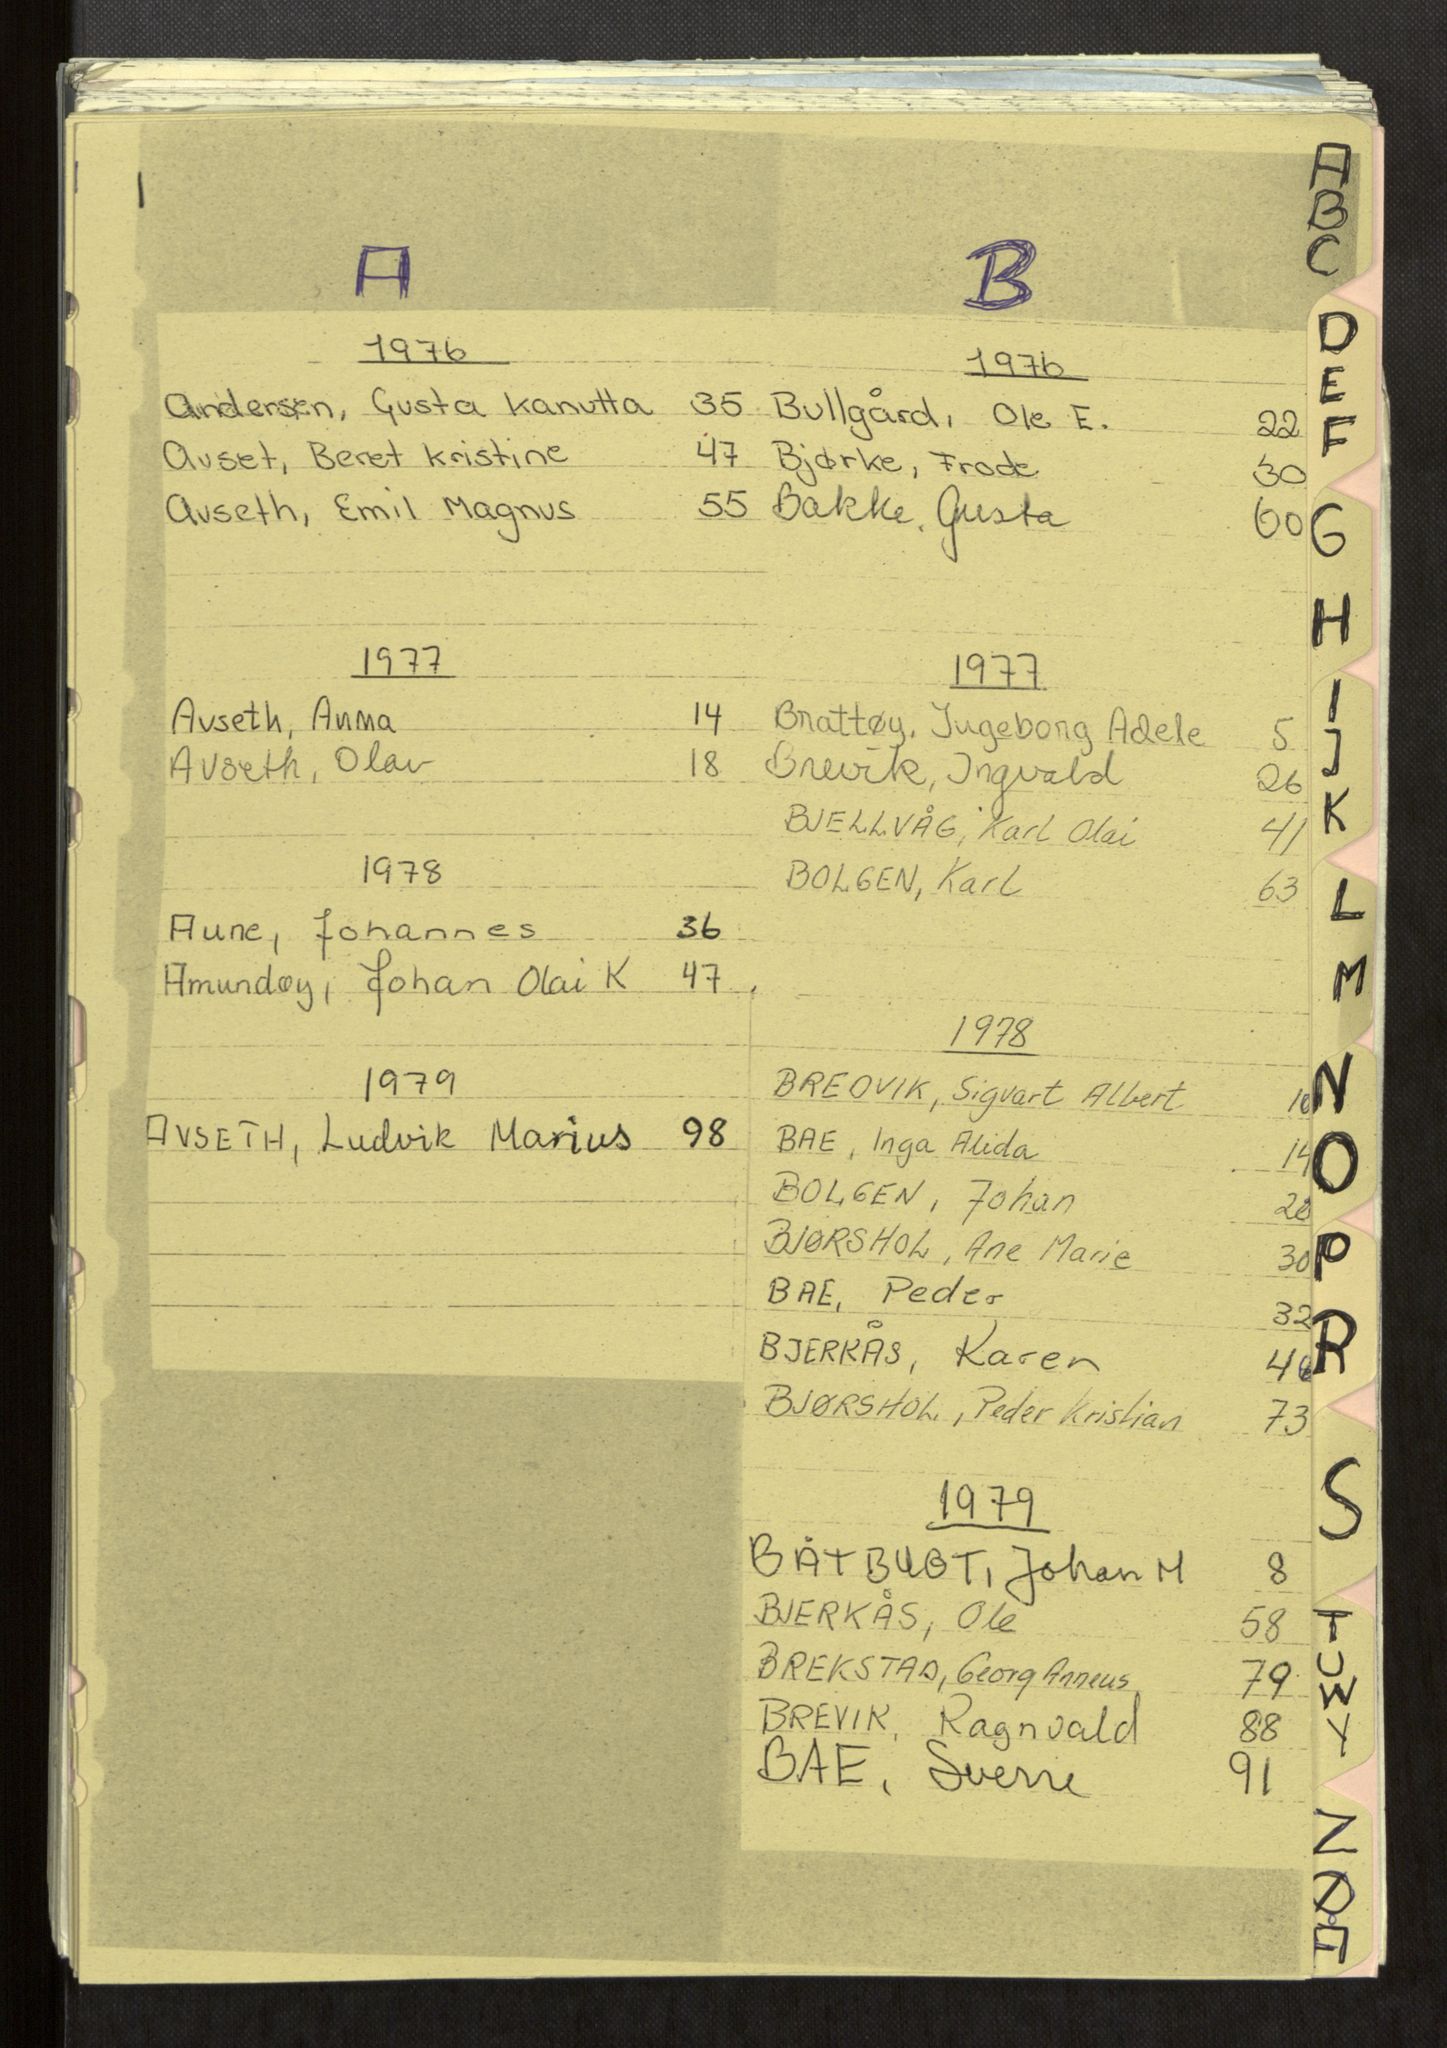 A
1976
Andersen, Gusta Kanutta 35
Avset, Beret Kristine 47
Avseth, Emil Magnus 55
1977
Avseth, Anna 14
Avseth, Olav 18
1978
Aune, Johannes 36
Amundøy, Johan Olai K 47
1979
AVSETH, Ludvik Marius 98
B
1976
Bullgård, Ole E. 22
Bjørke, Frode 30
Bakke, Gusta 60
1977
Brattøy, Ingeborg Adele 5
Brevik, Ingvald 26
BJELLVÅG, Karl Olai 41
BOLGEN, Karl 63
1978
BREOVIK, Sigvart Albert
BAE, Inga Alida 14
BOLGEN, Johan
BJØRSHOL, Ane Marie 30
BAE, Peder 32
BJERKÅS, Karen
BJØRSHOL, Peder Kristian 73
1979
BÅTBUGT, Johan M 8
BJERKÅS, Ole 58
BREKSTAD, Georg Anneus 79
BREVIK, Ragnvald 88
BAE, Sverre 91
A
B
C
D
E
F
G
H
I
J
K
L
M
N
O
P
R
S
T
U
W
Y
Z
Ø
Å